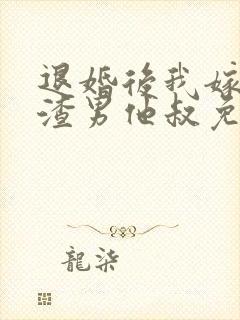 退婚後我嫁
渣男他叔免
龍柒